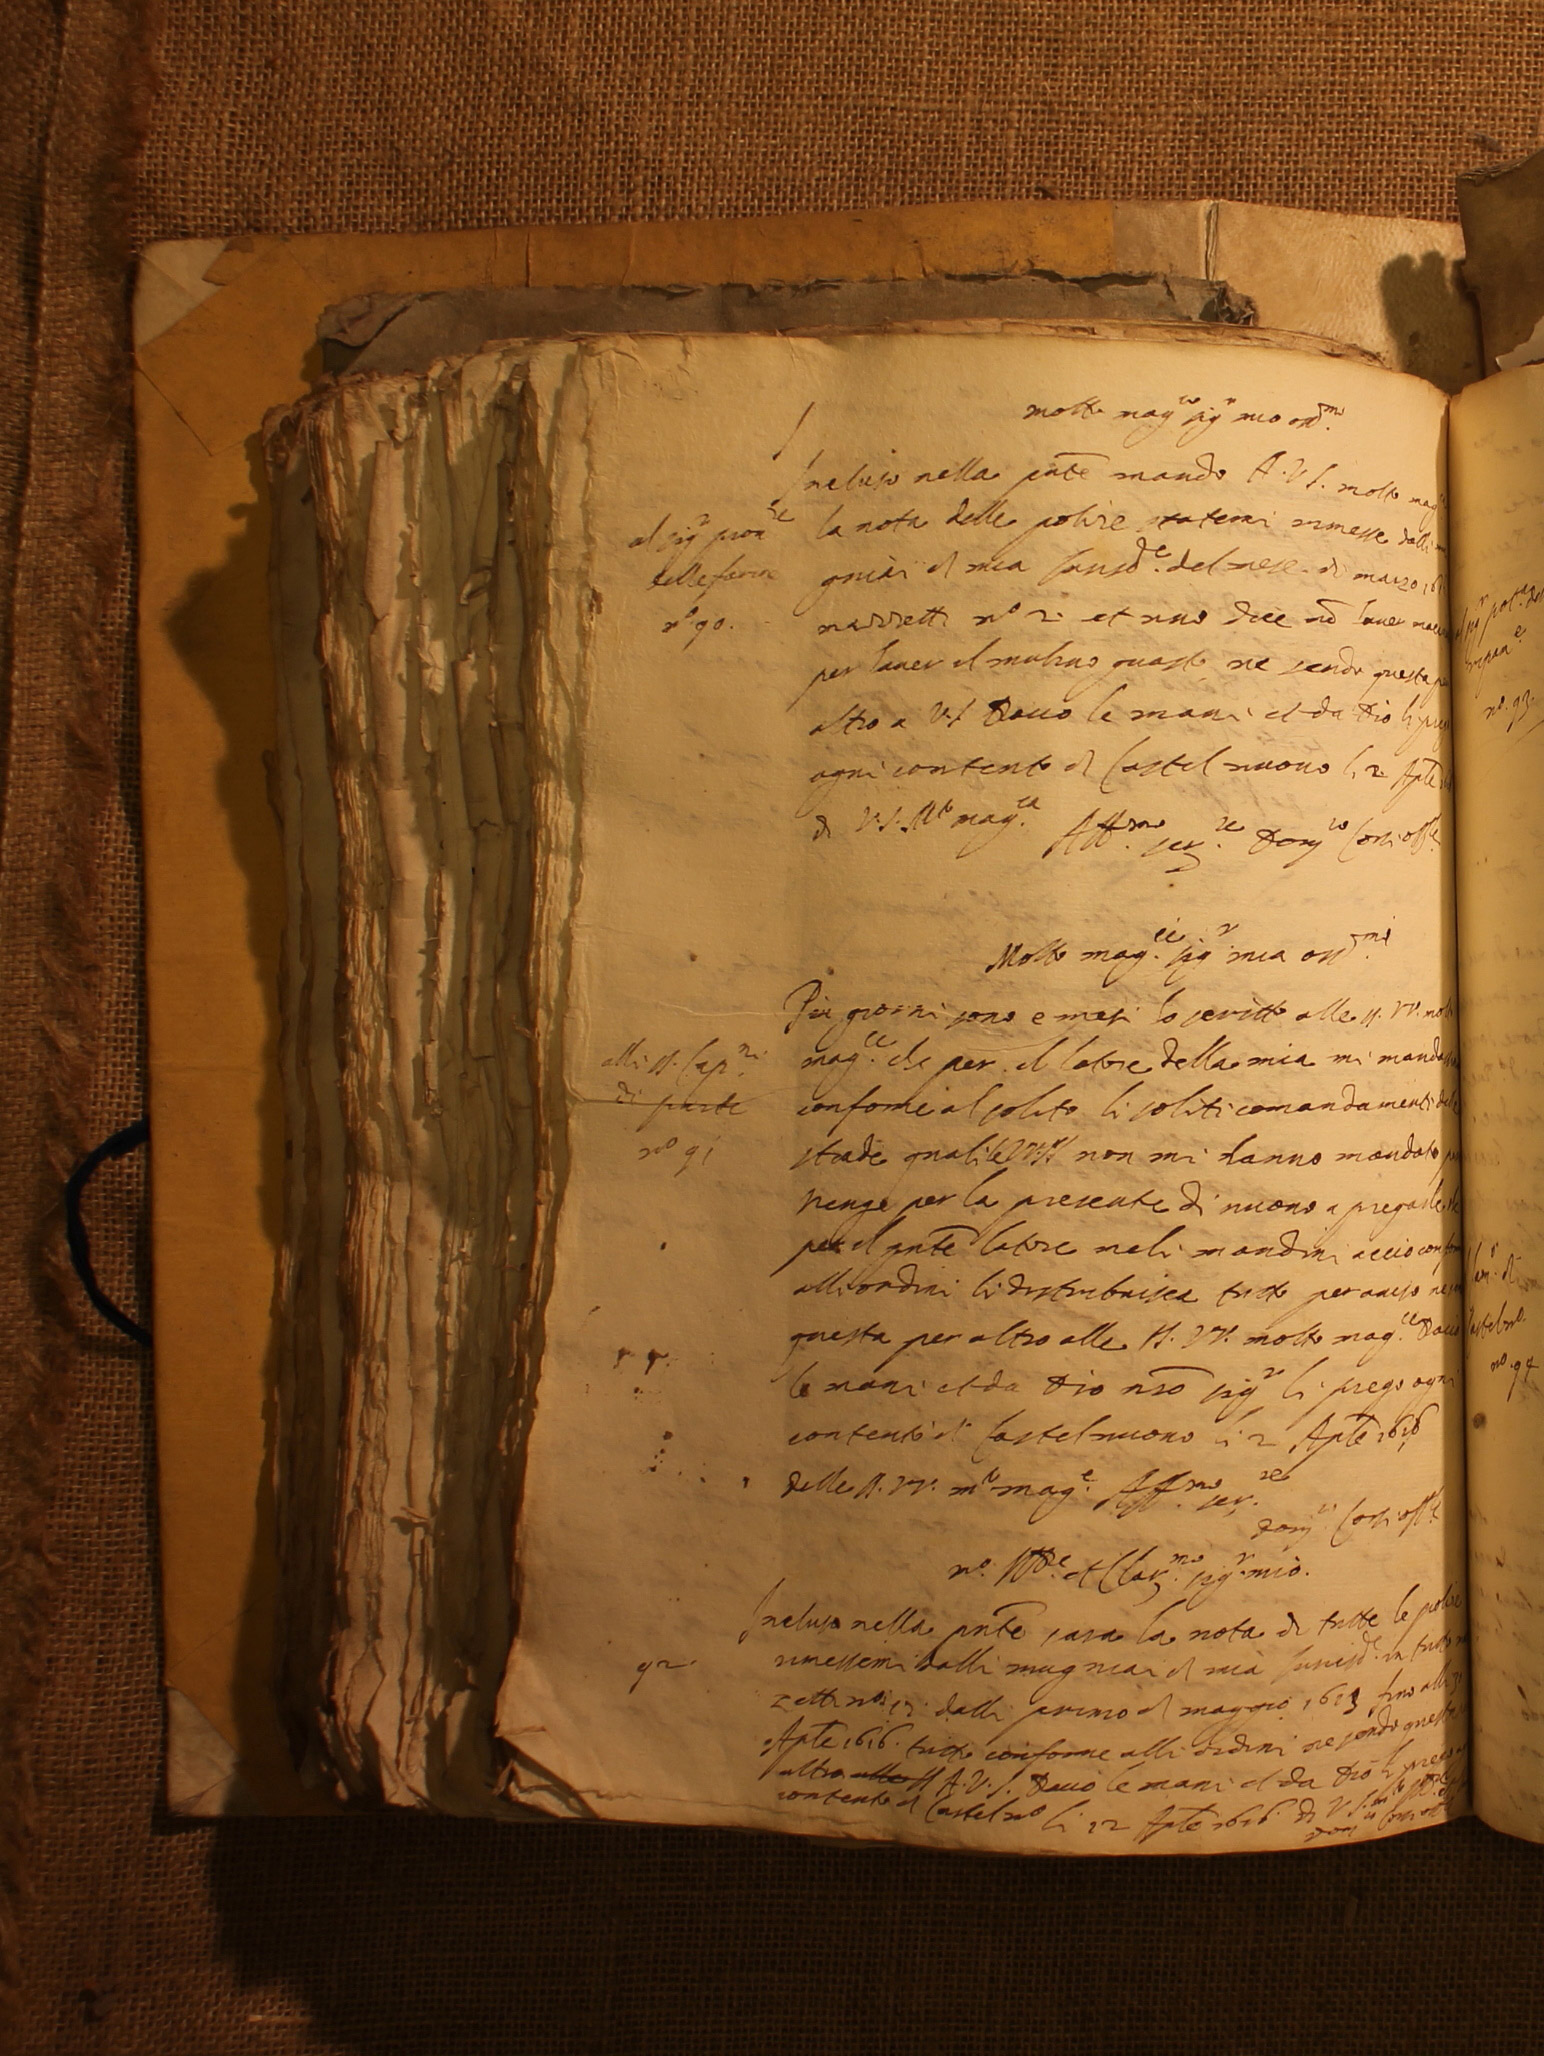 molto mag.co sig.r mio oss.mo
Incluso nella pnte mando A. V. S. molto mag
al sig.r pron.re
la nota delle polise statemi rimesse dalli
delle farine
gniari di mia Jurisd.e del mese di marzo 161
n.o 90.
mazzetti n.o 2: et uno dice nõ haver
per haver il mulino guasto, ne sendo questa p
altro a V.S. Baccio le mani et da Dio li preg
ogni contento di Castelnuovo li 2 Aple
di V.S. M.to mag.ca Aff.mo ser.re Dom.co Corsi off.le
Molto mag.ci sig.r mia oss.mi
Più giorni sono e mesi ho scritto alle SS. VV. molt
alli SS. Cap.ni
mag.ce che per il latore della mia mi manda
di parte
conforme al solito li soliti comandamenti delle
n.o 91
strade quali le VV. SS. non mi hanno mandato p
venge per la presente di nuovo a pregarle
per il pnte latore me li mandini accio conform
alli ordini li distribuisca tutto per aviso
questa per altro alle SS. VV. molto mag.ce Baccio
le mani et da Dio nro sig.re li prego ogni
contento di Castelnuovo li 2 Aple 1616
delle SS. VV. m.to mag.e Aff.mo ser.re
Dom.co Corsi off.le
m.o Ill.re et Clar.mo sig.r mio.
Incluso nella pnte sara la nota di tutte le polise
92
rimessemi dalli mugniari di mia Jurisd.e in tutto
zetti n.o 13: dalli primo di maggio 1615 fino alli 3
Aple 1616. tutto conforme alli ordini ne sendo questa
altro alle SS A. V. S. Baccio le mani et da Dio li prego
contento di Castelno.o li 12 Aple 1616 di V.S.
Dom.co Corsi
al sig.r pot.a
n.o 93.
Castelno.
n.o 94